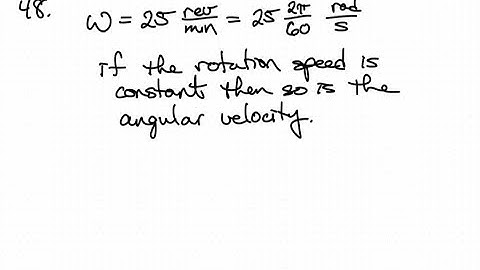 48. ω = 25 rev/min = 25 2π/60 rad/s
If the rotation speed is
constant then so is the
angular velocity.